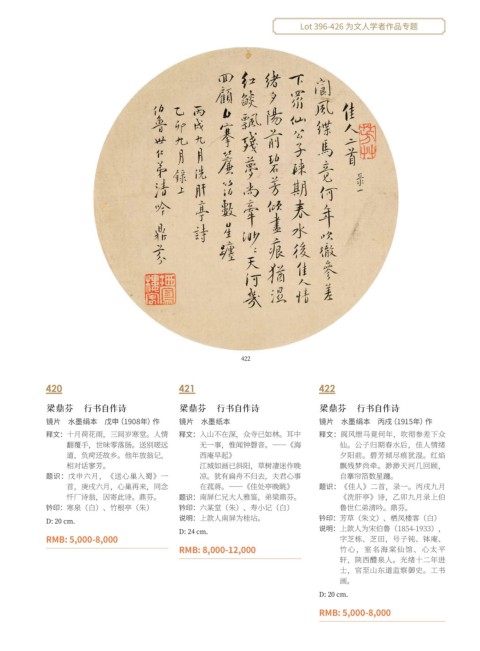 Lot 396-426 为文人学者作品专题
佳人二首 录一
閬風緤馬竟何年吹徹參差
下眾仙公子疎期春水後佳人情
緒夕陽前碧芳傾盡痕猶濕
紅燄飄殘夢尚牽渺渺天河幾
回顧自搴簾箔數星躔
丙戌九月洗肝亭詩
乙卯九月錄上
伯魯世仁弟清吟 鼎芬
422
420
梁鼎芬 行书自作诗
镜片 水墨绢本 戊申(1908年)作
释文：十月荷花雨，三间岁寒堂。人情
翻覆手，世味零落肠。送别嗟远
道，负疴还故乡。他年放临记，
相对话寥芳。
题识：戊申六月，《送心巢入蜀》一
首，庚戌六月，心巢再来，同念
忏厂诗翁，因寄此诗。鼎芬。
钤印：寒泉（白）、竹根亭（朱）
D: 20 cm.
RMB: 5,000-8,000
421
梁鼎芬 行书自作诗
镜片 水墨纸本
释文：入山不在深，众寺已如林。耳中
无一事，惟闻钟磬音。——《海
西庵早起》
江城如画已斜阳，草树凄迷作晚
凉。犹有扁舟不归去，夫君心事
在菰蒋。——《佳处亭晚眺》
题识：南屏仁兄大人雅鉴，弟梁鼎芬。
钤印：六某堂（朱）、寿小记（白）
说明：上款人南屏为桂坫。
D: 24 cm.
RMB: 8,000-12,000
422
梁鼎芬 行书自作诗
镜片 水墨绢本 丙戌(1915年)作
释文：阆风绁马竟何年，吹彻参差下众
仙。公子归期春水后，佳人情绪
夕阳前。碧芳倾尽痕犹湿。红焰
飘残梦尚牵。渺渺天河几回顾，
自搴帘箔数星躔。
题识：《佳人》二首，录一。丙戌九月
《洗肝亭》诗，乙卯九月录上伯
鲁世仁弟清吟。鼎芬。
钤印：芳草（朱文）、栖凤楼客（白）
说明：上款人为宋伯鲁（1854-1933），
字芝栋、芝田，号子钝、钵庵、
竹心，室名海棠仙馆、心太平
轩，陕西醴泉人。光绪十二年进
士，官至山东道监察御史。工书
画。
D: 20 cm.
RMB: 5,000-8,000